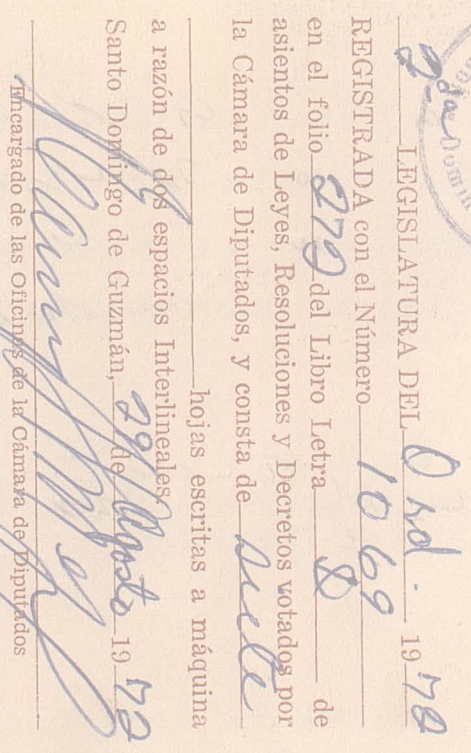 2da LEGISLATURA DEL Ord. 1972
REGISTRADA con el Número 1069
en el folio 272 del Libro Letra de
asientos de Leyes, Resoluciones y Decretos votados por
la Cámara de Diputados, y consta de siete
hojas escritas a máquina
a razón de dos espacios Interlineales.
Santo Domingo de Guzmán, 29 de Agosto 1972
Encargado de las Oficinas de la Cámara de Diputados